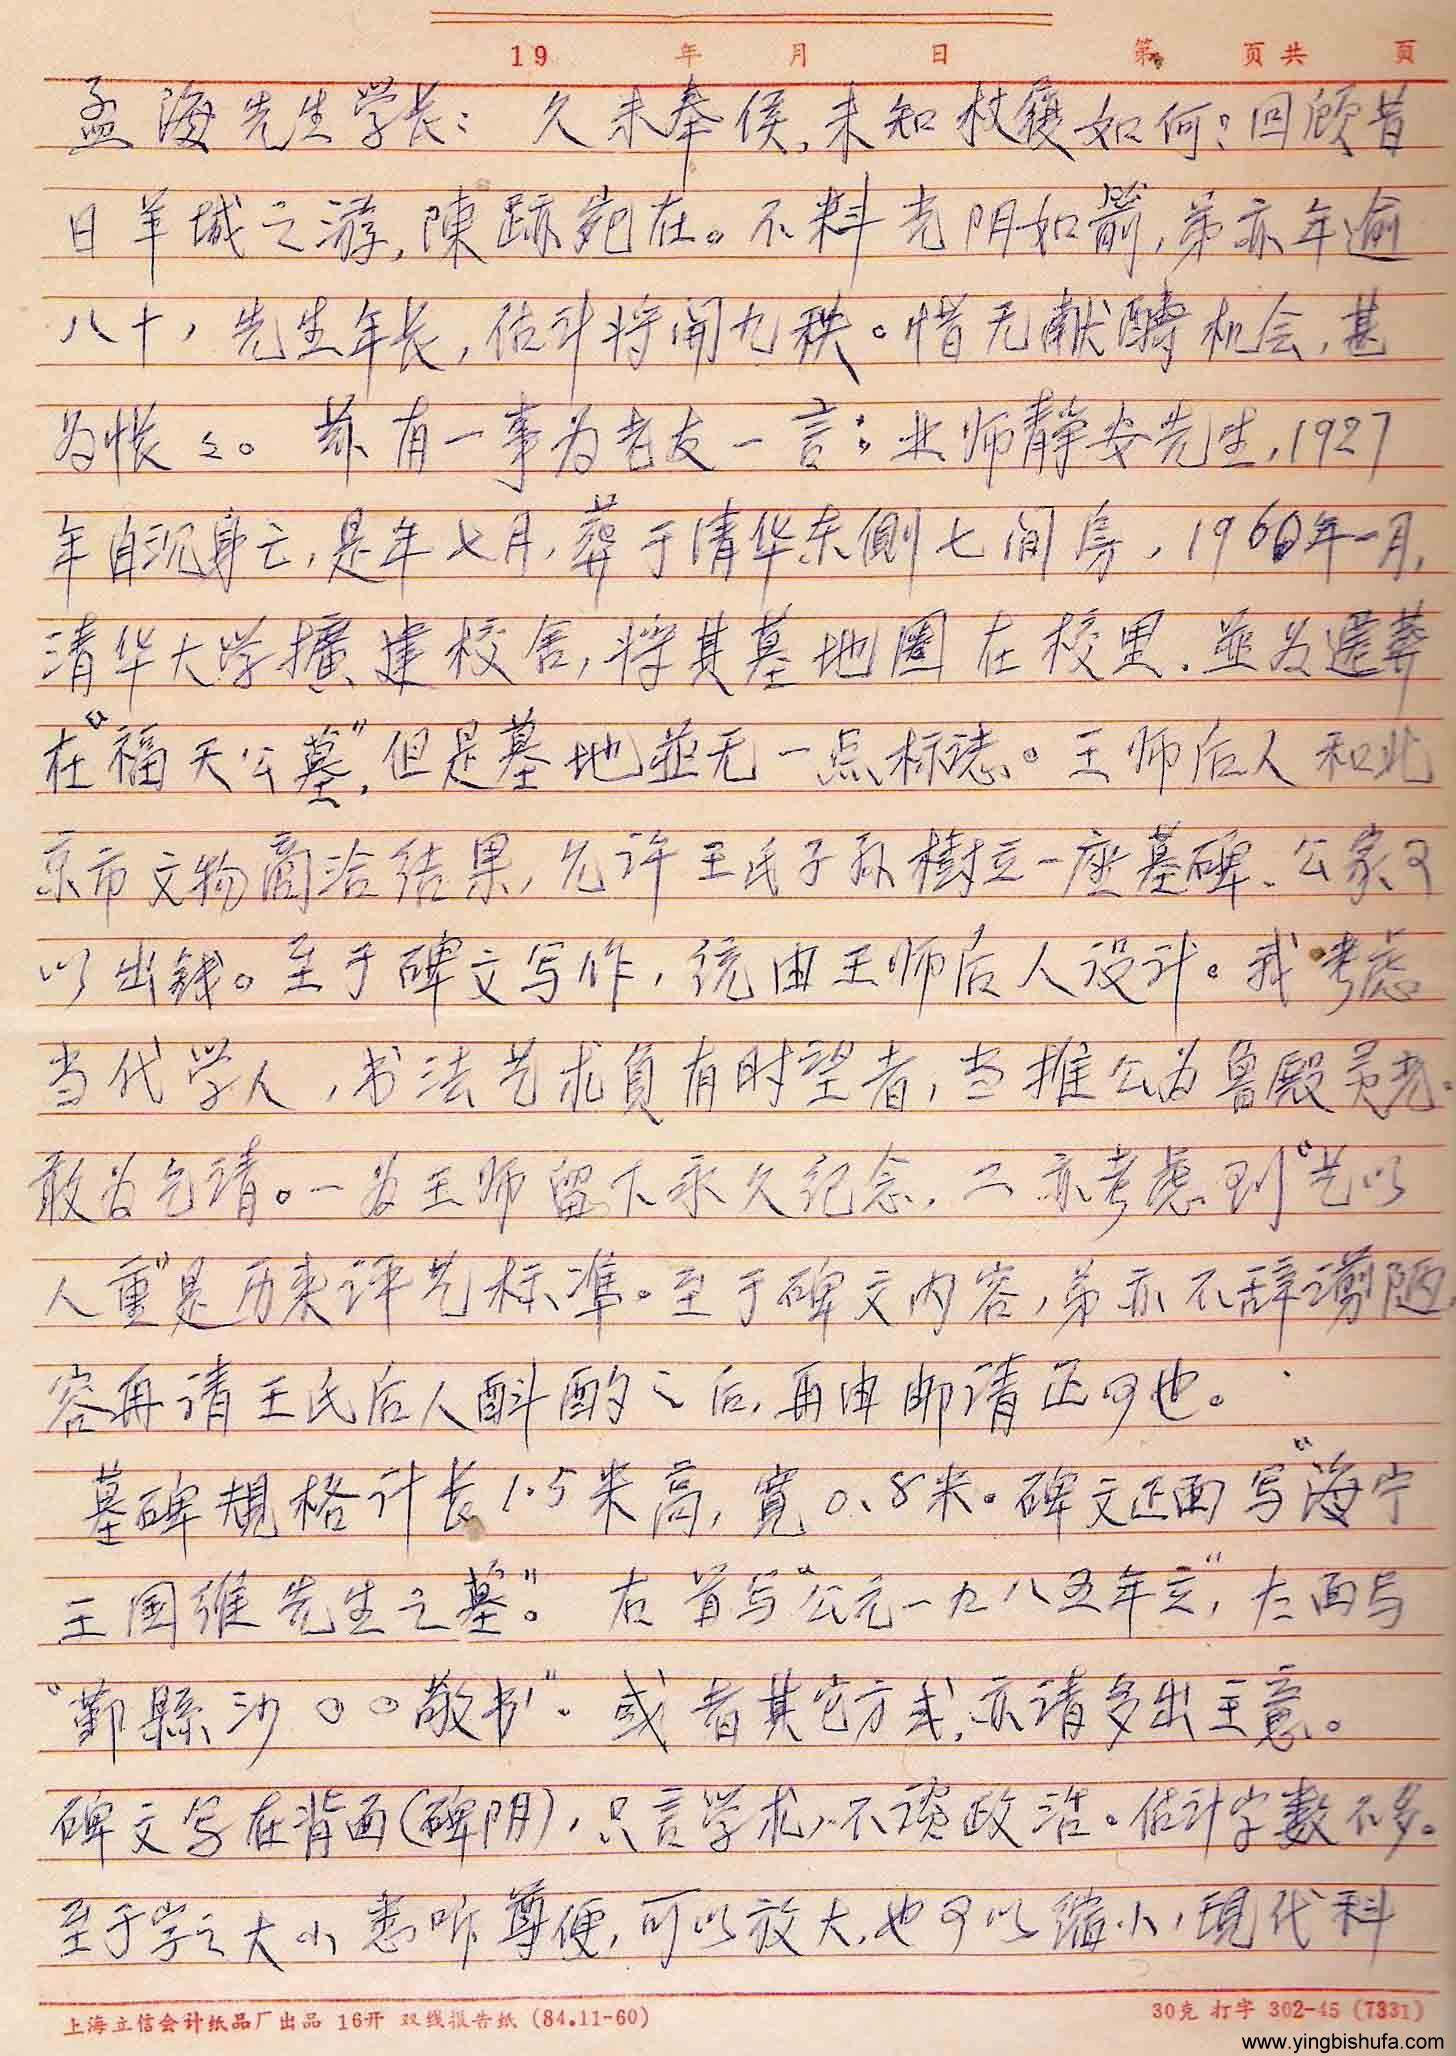 19 年 月 日 第 页共 页
孟海先生学长：久未奉侯，未知杖履如何？回顾昔
日羊城之游，陳跡宛在。不料光阴如箭，弟亦年逾
八十，先生年长，估计将開九秩。惜无献醻机会，甚
为怅々。兹有一事为老友一言：业师静安先生，1927
年自沉身亡，是年七月，葬于清华东側七间房，1960年一月，
清华大学擴建校舍，将其墓地圈在校里．並为遷葬
在“福天公墓”，但是墓地並无一点标誌。王师后人和北
京市文物商洽结果，允许王氏子孙樹立一座墓碑、公家可
以出錢。至于碑文写作，统由王师后人设计。我考虑
当代学人，书法艺术負有时望者，当推公为鲁殿灵光．
敢为乞请。一为王师留下永久纪念，二亦考虑到“艺以
人重”是历来评艺标準。至于碑文内容，弟亦不辞谫陋，
容再请王氏后人斟酌之后，再由邮请正可也。
墓碑規格计长1.5米高，寬0.8米。碑文正面写“海宁
王国维先生之墓”。右首写“公元一九八五年立”，左面写
“鄞縣沙〇〇敬书”．或者其它方式，亦请多出主意。
碑文写在背面（碑阴），只言学术，不谈政治。估计字数不多。
至于字之大小悉听尊便，可以放大，也可以缩小，现代科
上海立信会计纸品厂出品 16开 双线报告纸 (84.11-60)
30克 打字 302-45 (7331)
www.yingbishufa.com